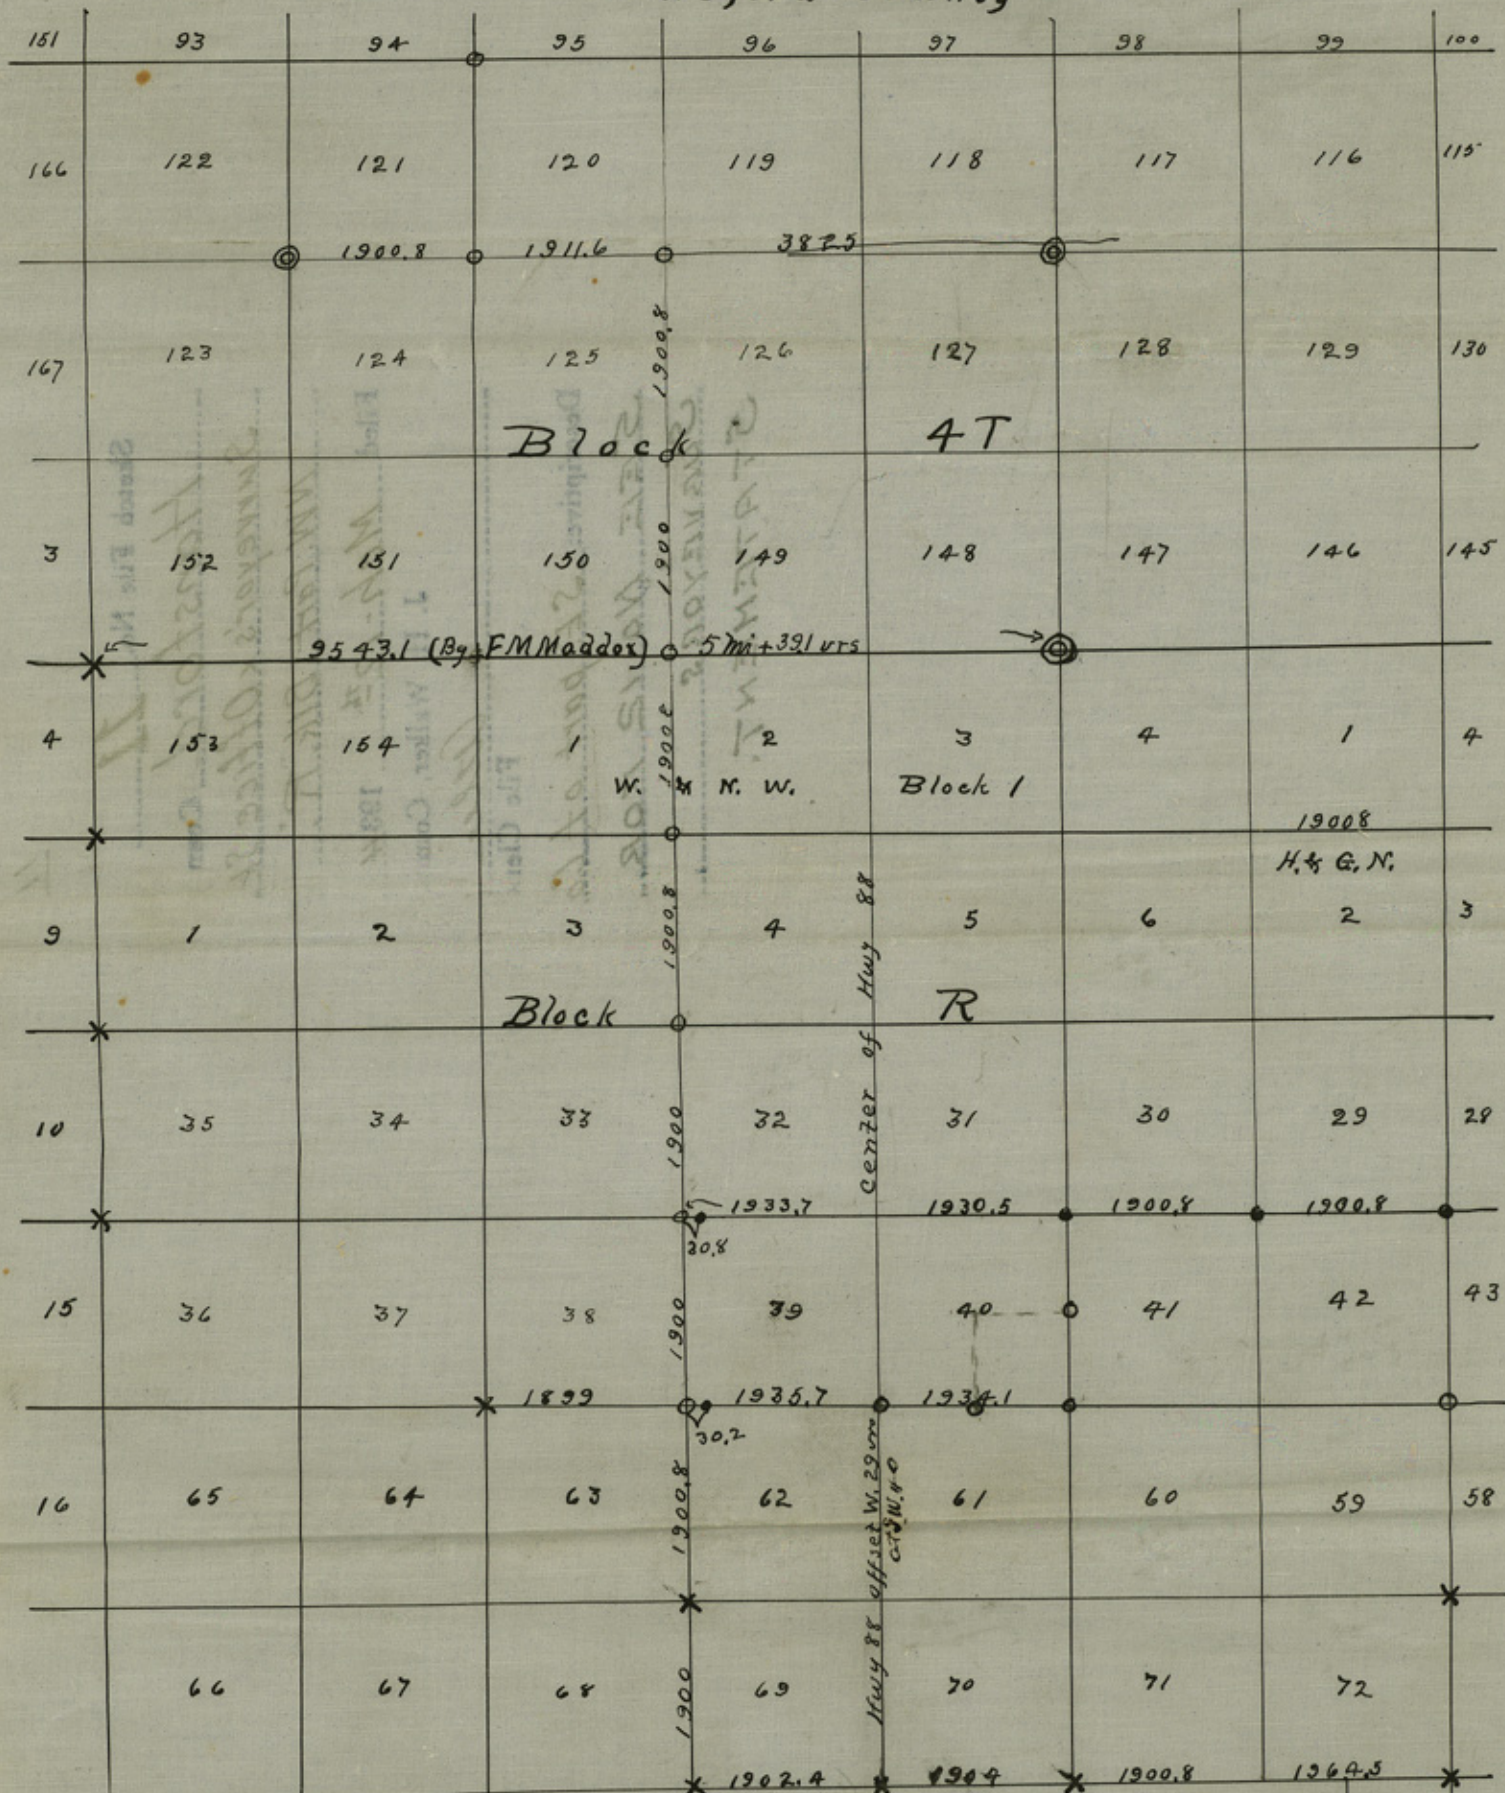 151 93 94 95 96 97 98 99 100
166 122 121 120 119 118 117 116 115
1900.8 1911.6 3825
1900.8
167 123 124 125 126 127 128 129 130
Block 4T
1900
3 152 151 150 149 148 147 146 145
9543.1 (By FM Maddox) 5 mi + 39.1 vrs
4 153 154 1 2 3 4 1 4
1900.8
W. & N. W. Block 1
1900.8
H. & G. N.
9 1 2 3 4 5 6 2 3
1900.8
Center of Hwy 88
Block R
10 35 34 33 32 31 30 29 28
1900
1933.7 1930.5 1900.8 1900.8
30.8
15 36 37 38 39 40 41 42 43
1900
1899 1935.7 1934.1
30.2
16 65 64 63 62 61 60 59 58
1900.8
Hwy 88 offset W. 29 vrs
at S.W. 40
66 67 68 69 70 71 72
1900
1902.4 1904 1900.8 1964.5